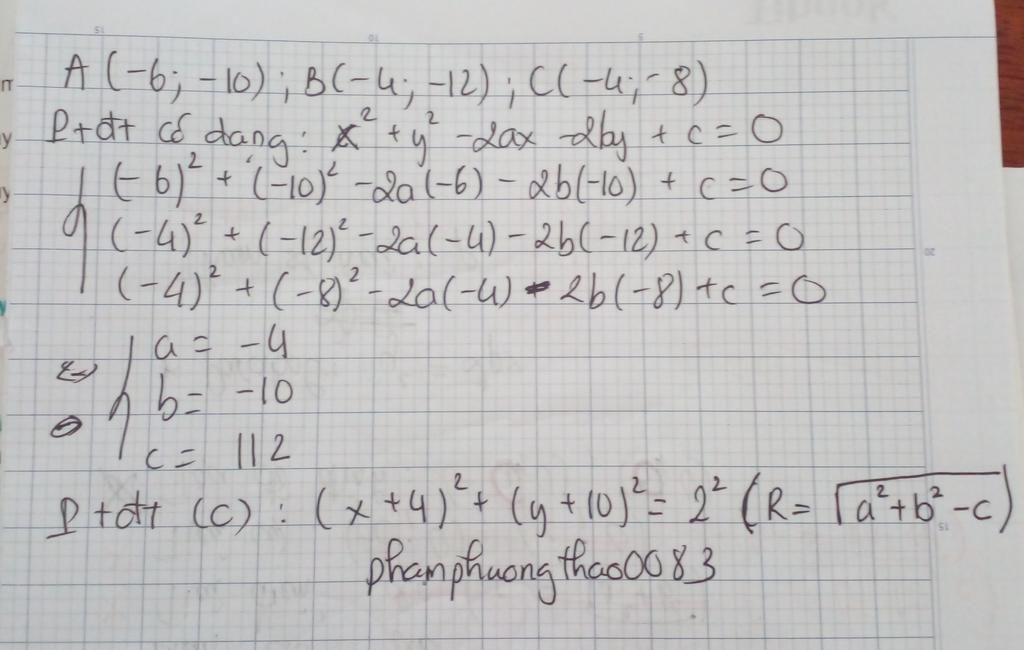 A(-6; -10); B(-4; -12); C(-4; -8)
Ptđt có dạng: x² + y² - 2ax - 2by + c = 0
(-6)² + (-10)² - 2a(-6) - 2b(-10) + c = 0
(-4)² + (-12)² - 2a(-4) - 2b(-12) + c = 0
(-4)² + (-8)² - 2a(-4) - 2b(-8) + c = 0
⇔ { a = -4
b = -10
c = 112
Ptđt (C): (x + 4)² + (y + 10)² = 2² (R = √(a² + b² - c))
phamphuongthao0083